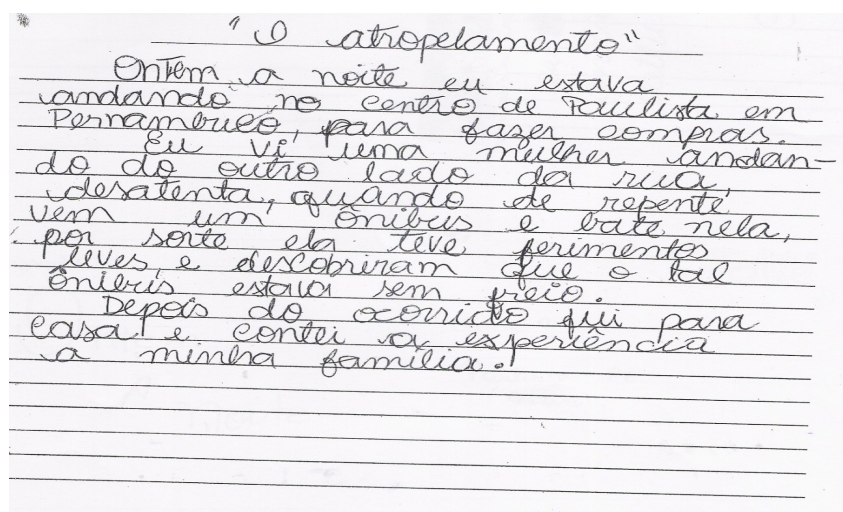 "O atropelamento"
Ontem a noite eu estava
andando no centro de Paulista em
Pernambuco, para fazer compras.
Eu vi uma mulher andan-
do do outro lado da rua,
desatenta, quando de repente
vem um ônibus e bate nela,
por sorte ela teve ferimentos
leves, e descobriram que o tal
ônibus estava sem freio.
Depois do ocorrido fui para
casa e contei a experiência
a minha família.